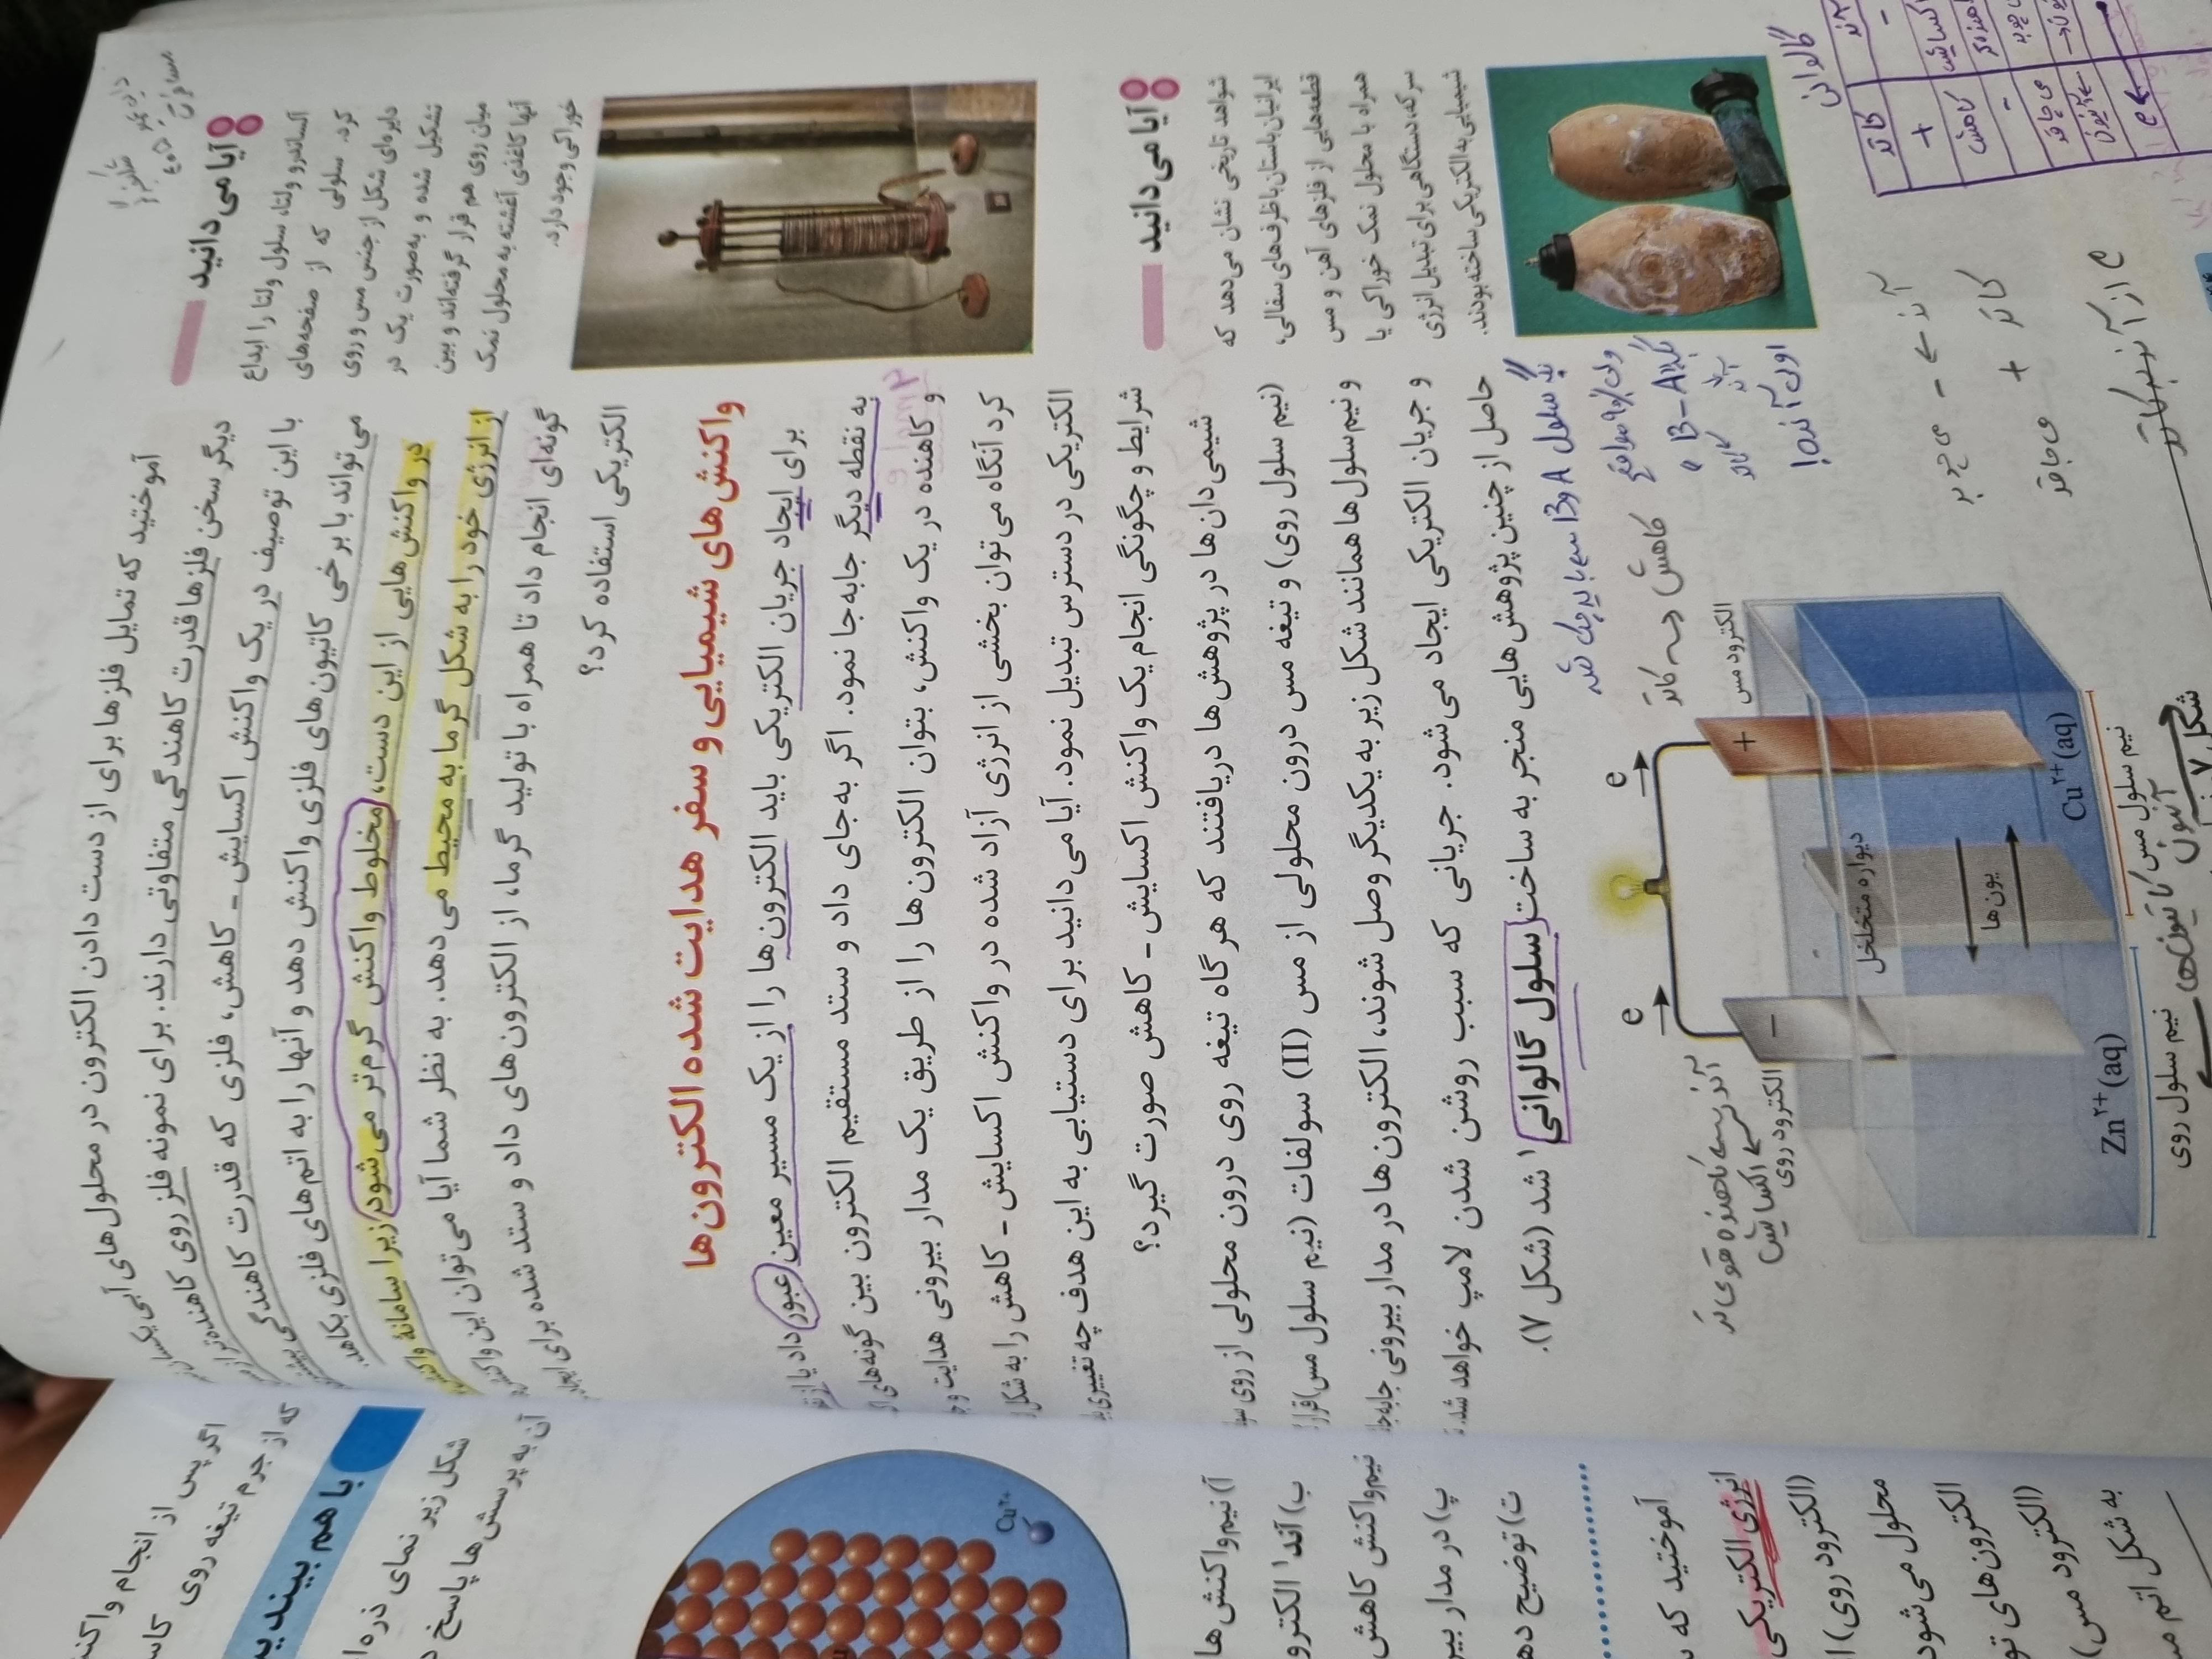 آموختید که تمایل فلزها برای از دست دادن الکترون در محلول‌های آبی یکسان
دیگر سخن فلزها قدرت کاهندگی متفاوتی دارند. برای نمونه فلز روی کاهنده‌تر از
با این توصیف در یک واکنش اکسایش ـ کاهش، فلزی که قدرت کاهندگی بیشتری
می‌تواند با برخی کاتیون‌های فلزی واکنش دهد و آنها را به اتم‌های فلزی بکاهد.
در واکنش‌هایی از این دست، مخلوط واکنش گرم‌تر می‌شود زیرا سامانهٔ واکنش
از انرژی خود را به شکل گرما به محیط می‌دهد. به نظر شما آیا می‌توان این واکنش
گونه‌ای انجام داد تا همراه با تولید گرما، از الکترون‌های داد و ستد شده برای ایجاد
الکتریکی استفاده کرد؟
واکنش‌های شیمیایی و سفر هدایت شده الکترون‌ها
برای ایجاد جریان الکتریکی باید الکترون‌ها را از یک مسیر معین عبور داد یا
به نقطه دیگر جابه‌جا نمود. اگر به‌جای داد و ستد مستقیم الکترون بین گونه‌های
و کاهنده در یک واکنش، بتوان الکترون‌ها را از طریق یک مدار بیرونی هدایت و
کرد آنگاه می‌توان بخشی از انرژی آزاد شده در واکنش اکسایش ـ کاهش را به شکل
الکتریکی در دسترس تبدیل نمود. آیا می‌دانید برای دستیابی به این هدف چه تغییری
شرایط و چگونگی انجام یک واکنش اکسایش ـ کاهش صورت گیرد؟
شیمی‌دان‌ها در پژوهش‌ها دریافتند که هرگاه تیغه روی درون محلولی از روی
(نیم سلول روی) و تیغه مس درون محلولی از مس (II) سولفات (نیم سلول مس) قرار
و نیم‌سلول‌ها همانند شکل زیر به یکدیگر وصل شوند، الکترون‌ها در مدار بیرونی جابه‌جا
و جریان الکتریکی ایجاد می‌شود. جریانی که سبب روشن شدن لامپ خواهد شد.
حاصل از چنین پژوهش‌هایی منجر به ساخت سلول گالوانی۱ شد (شکل ۷).
e
e
کاهش کاتد
آند کاهنده قوی تر
اکسایش
الکترود روی
−
+
الکترود مس
دیواره متخلخل
یون‌ها
Zn۲+(aq)
Cu۲+(aq)
نیم سلول روی
نیم سلول مس
کاتیون‌ها
آنیون
شکل ۷ـ
مسافرت
آیا می‌دانید
آلساندرو ولتا، سلول ولتا را ابداع
کرد. سلولی که از صفحه‌های
دایره‌ای شکل از جنس مس و روی
تشکیل شده و به‌صورت یک در
میان روی هم قرار گرفته‌اند و بین
آنها کاغذی آغشته به محلول نمک
خوراکی وجود دارد.
آیا می‌دانید
شواهد تاریخی نشان می‌دهد که
ایرانیان باستان با ظرف‌های سفالی،
قطعه‌هایی از فلزهای آهن و مس
همراه با محلول نمک خوراکی یا
سرکه، دستگاهی برای تبدیل انرژی
شیمیایی به الکتریکی ساخته بودند.
سلول A و B باید چک شه
ولی اگه مواقع
B – A
آند
کاتد
اولی آنده!
آند ← − می‌جوبد
کاتد + می‌چاقد
e از آند به کاتد
گالوانی
آند
کاتد
−
+
اکسایش
کاهش
−
می چاقد
آنیون
e
اگر پس از انجام
که از جرم تیغه روی
با هم بیندیشیم
شکل زیر نمای
آن به پرسش‌ها پاسخ
Cu۲+
آ) نیم‌واکنش‌ها
ب) آند۱
نیم‌واکنش کاهش
پ) در مدار
ت) توضیح
آموختید که
انرژی الکتریکی
(الکترود روی)
محلول می‌شود
الکترون‌های
(الکترود مس)
به شکل اتم